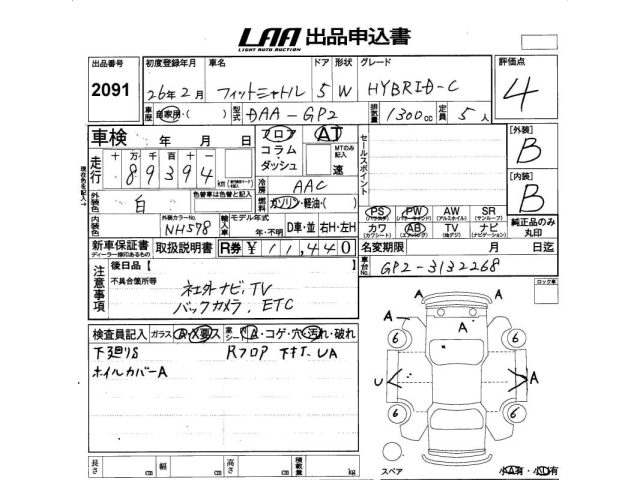 LAA 出品申込書
LIGHT AUTO AUCTION
出品番号 初度登録年月 車名 ドア 形状 グレード 評価点
2091 26年2月 フィットシャトル 5 W HYBRID-C 4
車歴 自家用・( ) 型式 DAA-GP2 排気量 1300cc 定員 5人
車検 年 月 日 フロア AT セールスポイント [外装]
コラム MTのみ記入 B
ダッシュ 速
走行 十 万 千 百 十 一
89394 km
冷房 AAC [内装]
外装色 白 色替車は色替と記入 燃料 ガソリン・軽油・( ) B
内装色 外装カラーNo. NH578 輸入車 モデル年式 年・不明 D車・並 右H・左H
PS PW AW SR
(パワステ) (パワーウィンド) (アルミホイル) (サンルーフ)
カワ AB TV ナビ 純正品のみ丸印
(カワシート) (エアバッグ) (地デジ) (ナビゲーション)
新車保証書 取扱説明書 R券 ¥11,440 名変期限 月 日迄
ディーラー捺印あるもの
車台No. GP2-3132268
注意事項 後日品【 】
不具合箇所等
社外ナビ,TV
バックカメラ,ETC
ロック車
検査員記入 ガラス A・X要ス 室内 シート A・コゲ・穴・汚れ・破れ
下廻りS Rフロア 下キズ UA
ホイルカバーA
A A
A
6 6
U A A
6 6
長さ cm 幅 cm 高さ cm 積載量 kg
スペア 小A有・小U有